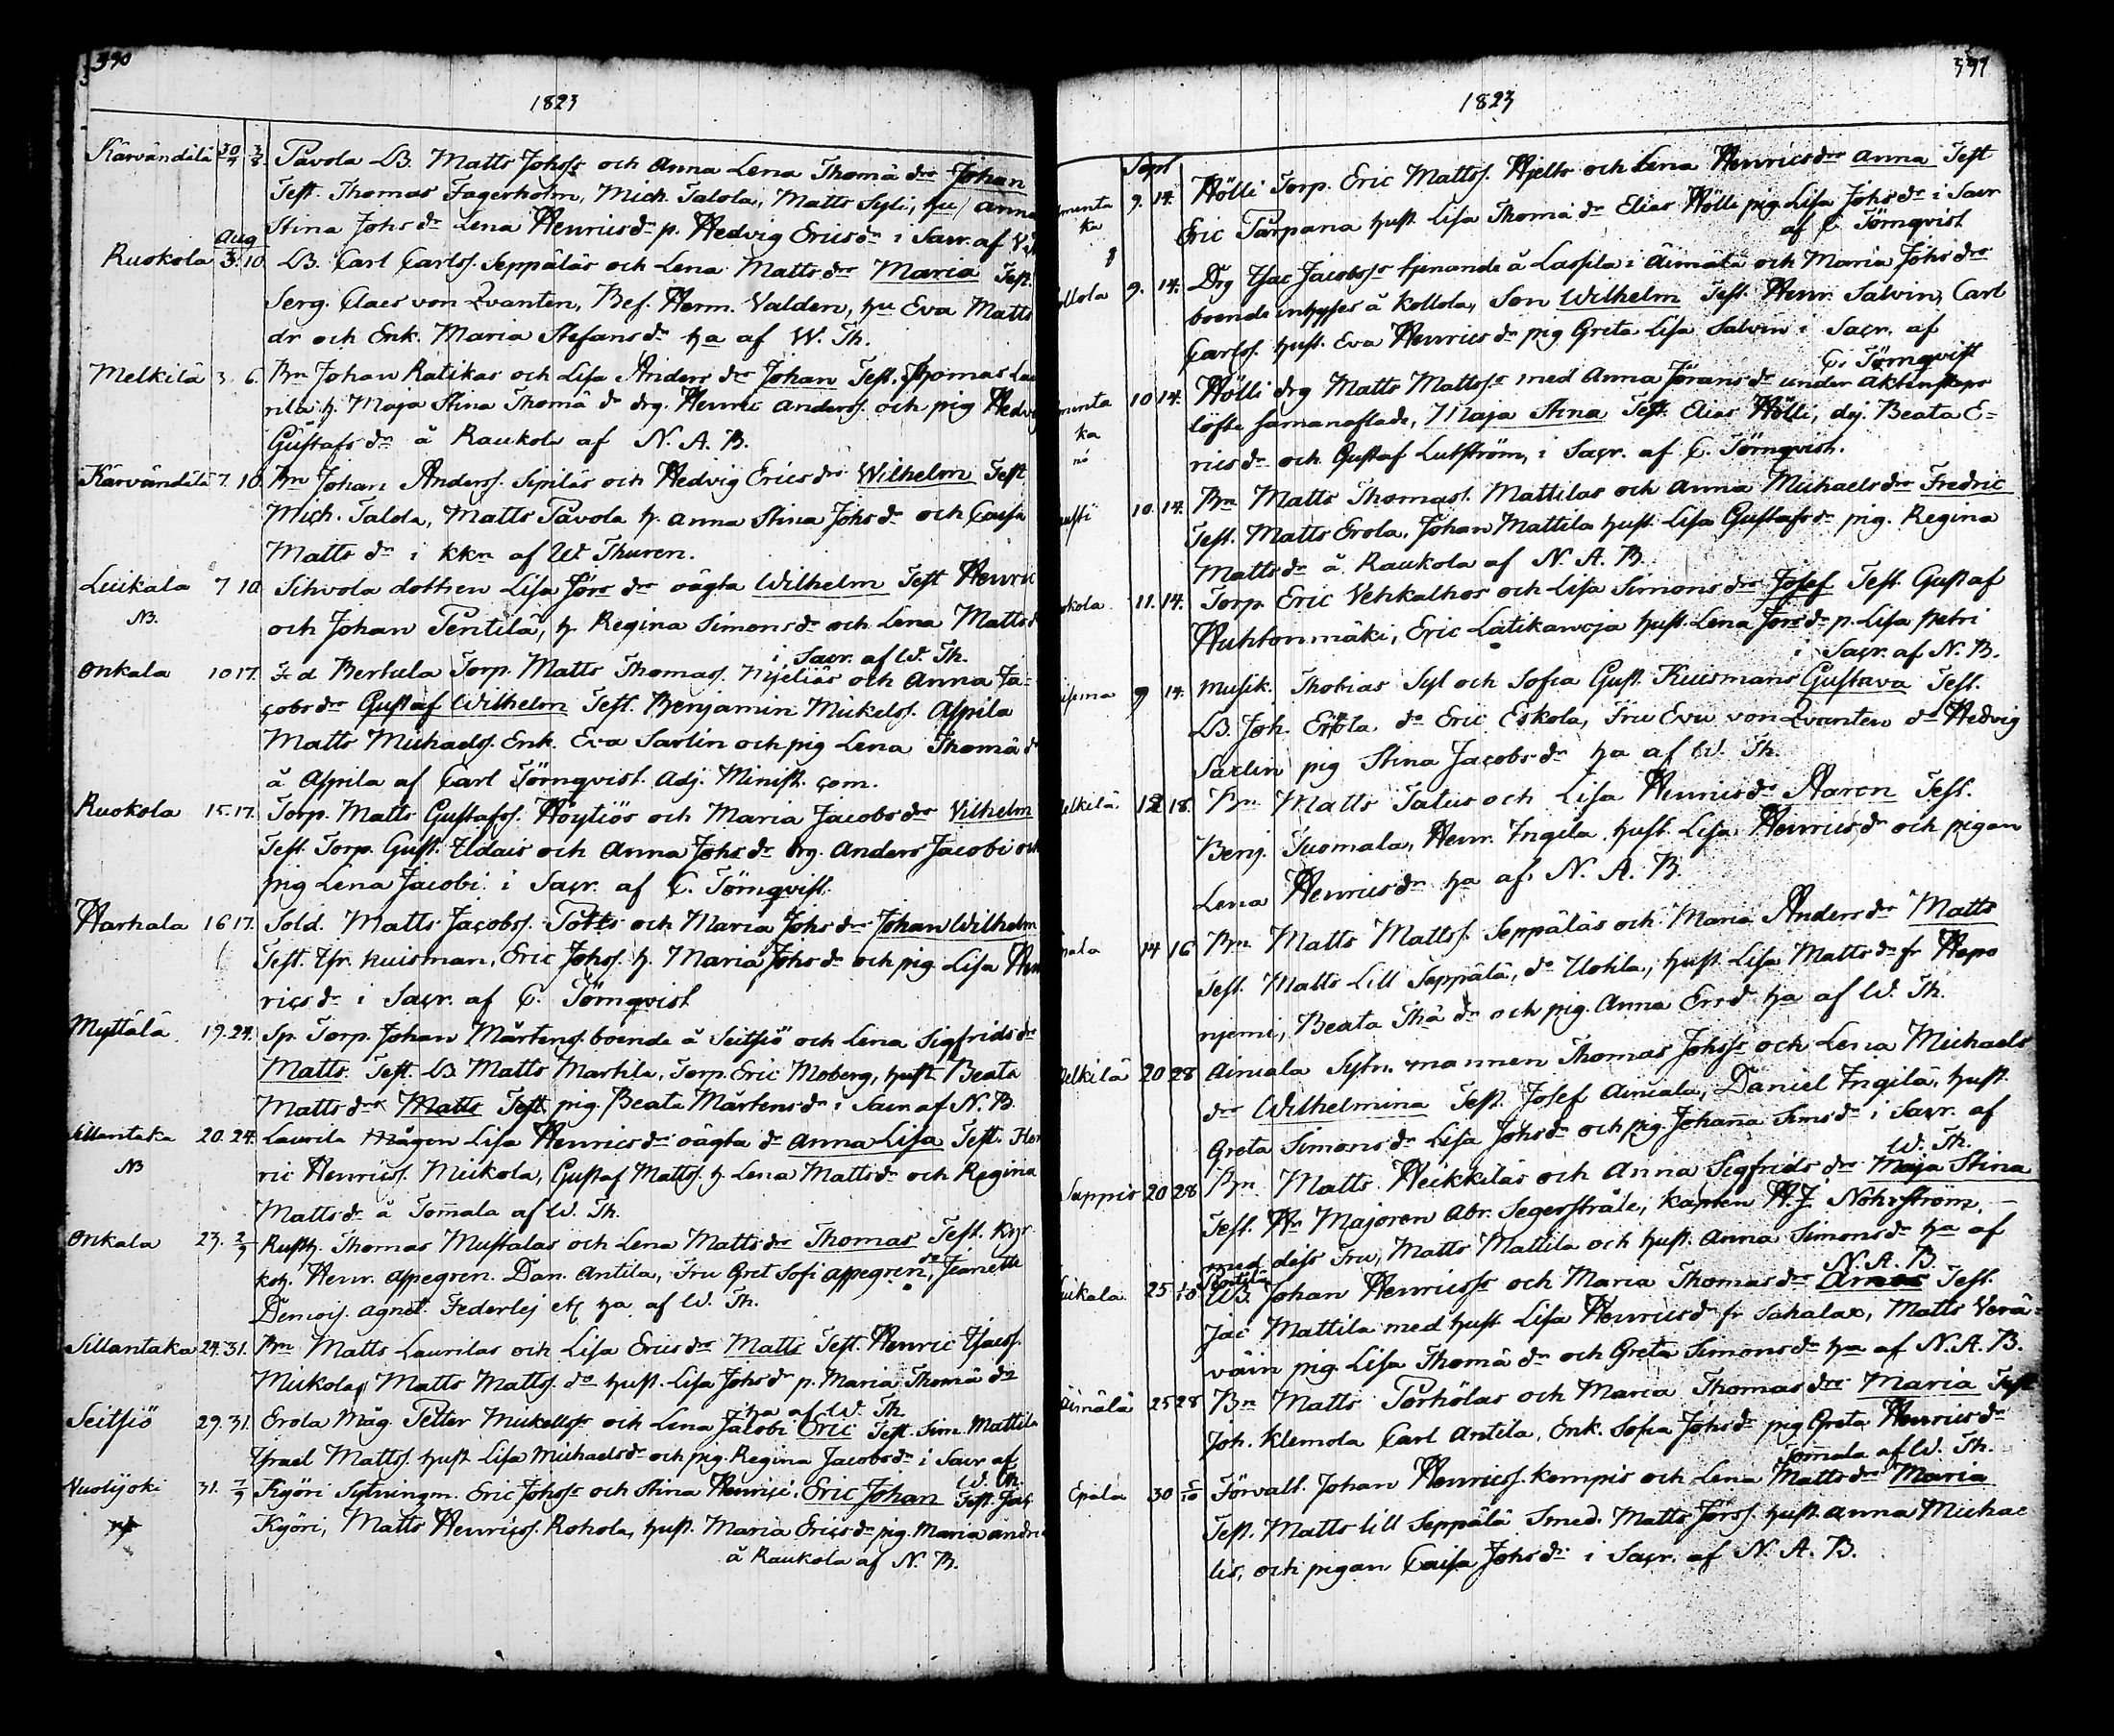 390
1823
Kärvändälä 30/7 3/8 Tavola LB. Matts Johss och Anna Lena Thomä dr Johan
Test. Thomas Fagerholm, Mich. Talola, Matts Syli, hu Anna
Stina Johs dr Lena Henricsdr p. Hedvig Ericsdr i Sacr. af
Aug
Ruokola 3. 10 LB. Carl Carlss. Seppäläs och Lena Matts dr Maria Test.
Serg. Claes von Qvanten, Bef. Herm. Valden, hu Eva Matts
dr och Enk. Maria Stefans dr ha af W. Th.
Melkilä 3. 6. Bn Johan Ratikas och Lisa Anders dr Johan Test. Thomas Lau
rila h. Maja Stina Thomä dr drg. Henric Anderss. och pig Hedvig
Gustafs dr å Raukola af N. A. B.
Kärvändälä 7. 10. Bn Johan Anderss. Sipiläs och Hedvig Erics dr Wilhelm Test
Mich. Talola, Matts Tavola h. Anna Stina Johs dr och Caisa
Matts dr i kkn af W Thuren.
Luikala 7 10 Sihvola dottren Lisa Jörs dr oägta Wilhelm Test Henric
NB. och Johan Pentilä, h. Regina Simons dr och Lena Matts d
i Sacr. af W. Th.
Onkala 10 17. Fr d Berkula Torp. Matts Thomass. Nyeliäs och Anna Ja-
cobs dr Gustaf Wilhelm Test. Benjamin Mickelss. Aspila
Matts Michaelss. Enk. Eva Sarlin och pig Lena Thomä d
å Aspila af Carl Törnqvist. Adj. Minist. com.
Ruokola 15. 17. Torp. Matts Gustafss. Höytiös och Maria Jacobs dr Vilhelm
Test Torp. Gust. Uldais och Anna Johs dr drg. Anders Jacobi och
pig Lena Jacobi i Sacr. af C. Törnqvist.
Harhala 16 17. Sold. Matts Jacobss. Potts och Maria Johs dr Johan Wilhelm
Test. Ufr. Kuisman, Eric Johss. h. Maria Johs dr och pig. Lisa Hen
rics dr i Sacr. af C. Törnqvist
Myttälä 19. 24. Sp. Torp. Johan Mårtenss. boende å Seitsiö och Lena Sigfrids dr
Matts. Test. LB Matts Martila, Torp. Eric Moberg, hust Beata
Matts dr Matts Test pig. Beata Mårtens dr i Sacr. af N. B.
Sillantaka 20. 24. Laurila Mågen Lisa Henrics dr oägta dr Anna Lisa Test. Hen
NB ric Henricss. Mickola, Gustaf Mattss. h. Lena Matts dr och Regina
Matts dr å Tommala af W. Th.
Onkala 23. 2/9 Rusth. Thomas Mustalas och Lena Matts dr Thomas Test. Kyr
koh. Henr. Appegren. Dan. Antila, Fru Gret Sofi Appegren, Jeanette
Demois. Agnet. Federlej etc ha af W. Th.
Sillantaka 24. 31. Bn Matts Laurilas och Lisa Erics dr Matts Test. Henric Isacs.
Mickola, Matts Mattss. do hust. Lisa Johs dr p. Maria Thomä dr
ha af W. Th
Seitsiö 29. 31. Erola Måg Petter Mickelss och Lena Jacobi Eric Test. Sim. Mattila
Israel Mattss. hust Lisa Michaels dr och pig. Regina Jacobs dr i Sacr af
W. Th.
Vuolijoki 31. 7/9 Kyöri Sytningm. Eric Johss och Stina Henrici. Eric Johan Test. Jac.
Kyöri, Matts Henricss. Rohola, hust. Maria Erics dr pig. Maria Andr
å Raukola af N. B.
391
1823
Sept
menta 9. 14. Hölli Torp. Eric Mattss. Hjelts och Lena Henrics dr Anna Test
ka Eric Tarpana hust Lisa Thomä dr Elias Hölli pig. Lisa Johs dr i Sacr
af C Törnqvist
ollola 9. 14. Drg Isac Jacobss tjenande å Laspila i Äimälä och Maria Johs dr
boende inhyses å Kollola, Son Wilhelm Test. Henr. Salvin, Carl
Carlss. hust. Eva Henrics dr pig Greta Lisa Salvin i Sacr. af
C. Törnqvist
menta 10 14. Hölli drg Matts Mattss med Anna Jörans dr under äktenskaps
ka löfte samanaflade, Maja Stina Test. Elias Hölli, dej. Beata E-
rics dr och Gustaf Lutström, i Sacr. af C. Törnqvist.
10. 14. Bn Matts Thomass. Mattilas och Anna Michaels dr Fredric
Test. Matts Erola, Johan Mattila hust. Lisa Gustafs dr pig. Regina
Matts dr å Raukola af N. A. B.
okola 11. 14. Torp. Eric Vehkalhos och Lisa Simons dr Josef Test. Gustaf
Huhtonmäki, Eric Latikanoja hust. Lena Jörs dr p. Lisa Petri
i Sacr. af N. B.
9 14. Musik. Thobias Syl och Sofia Gust. Kuismans Gustava Test.
LB. Joh. Erola, do Eric Eskola, Fru Eva von Qvanten do Hedvig
Sarlin pig Stina Jacobs dr ha af W. Th.
elkilä 12 18. Bn Matts Tatus och Lisa Henrics dr Aaron Test.
Benj. Tuomala, Henr. Ingila, hust. Lisa Henrics dr och pigan
Lena Henrics dr ha af N. A. B.
pala 14 16 Bn Matts Mattss. Seppäläs och Maria Anders dr Matts
Test. Matts Lill Seppälä, do Uotila, hust Lisa Matts dr fr Hapo
njemi, Beata Thä dr och pig. Anna Ersd ha af W. Th.
elkilä 20 28 Aimala Sytn. mannen Thomas Johss och Lena Michaels
dr Wilhelmina Test. Josef Aimala, Daniel Ingilä, hust.
Greta Simons dr Lisa Johs dr och pig. Johanna Sims dr i Sacr. af
W. Th.
Sappis 20 28 Bn Matts Heikkiläs och Anna Sigfrids dr Maja Stina
Test. Hr Majoren Abr. Segerstråle, kapten H. J. Nohrström,
med dess Fru, Matts Mattila och hust. Anna Simons dr ha af
N. A. B.
uikala 25 LB. Pentilä Johan Henricss och Maria Thomas dr Test.
Jac Mattila med hust Lisa Henrics dr fr Sahalax, Matts Verä-
väin pig. Lisa Thomä dr och Greta Simons dr ha af N. A. B.
Äimälä 25 28 Bn Matts Torhölas och Maria Thomas dr Maria Test
Joh. Klemola Carl Antila, Enk. Sofia Johs dr pig Greta Henrics dr
Tommala af W. Th.
Epala 30 5/10 Förvalt. Johan Henricss. Kempis och Lena Matts dr Maria
Test. Matts lill Seppälä Smed. Matts Jörss. hust. Anna Michae
lis, och pigan Caisa Johs dr i Sacr. af N. A. B.